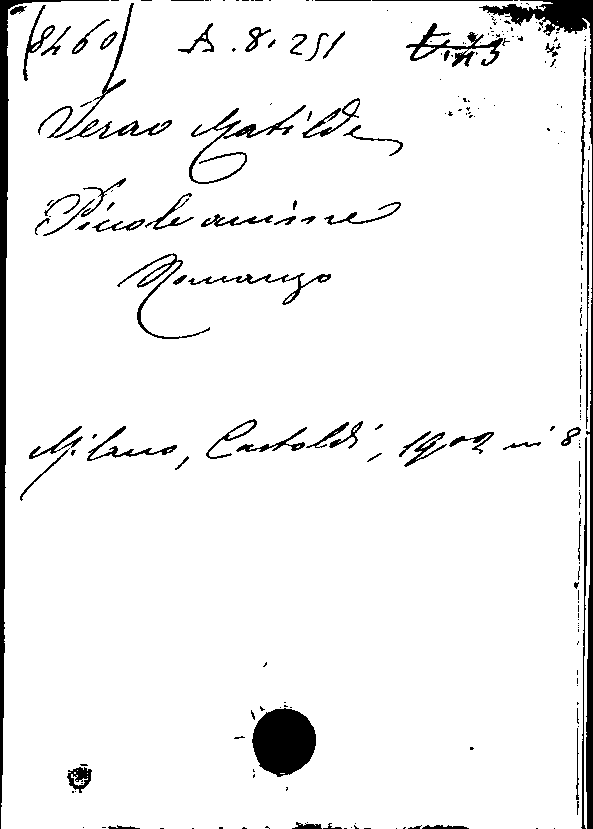 (8460) A.8.251
Serao Matilde
Piccole anime
Romanzo
Milano, Castoldi, 1902 in 8